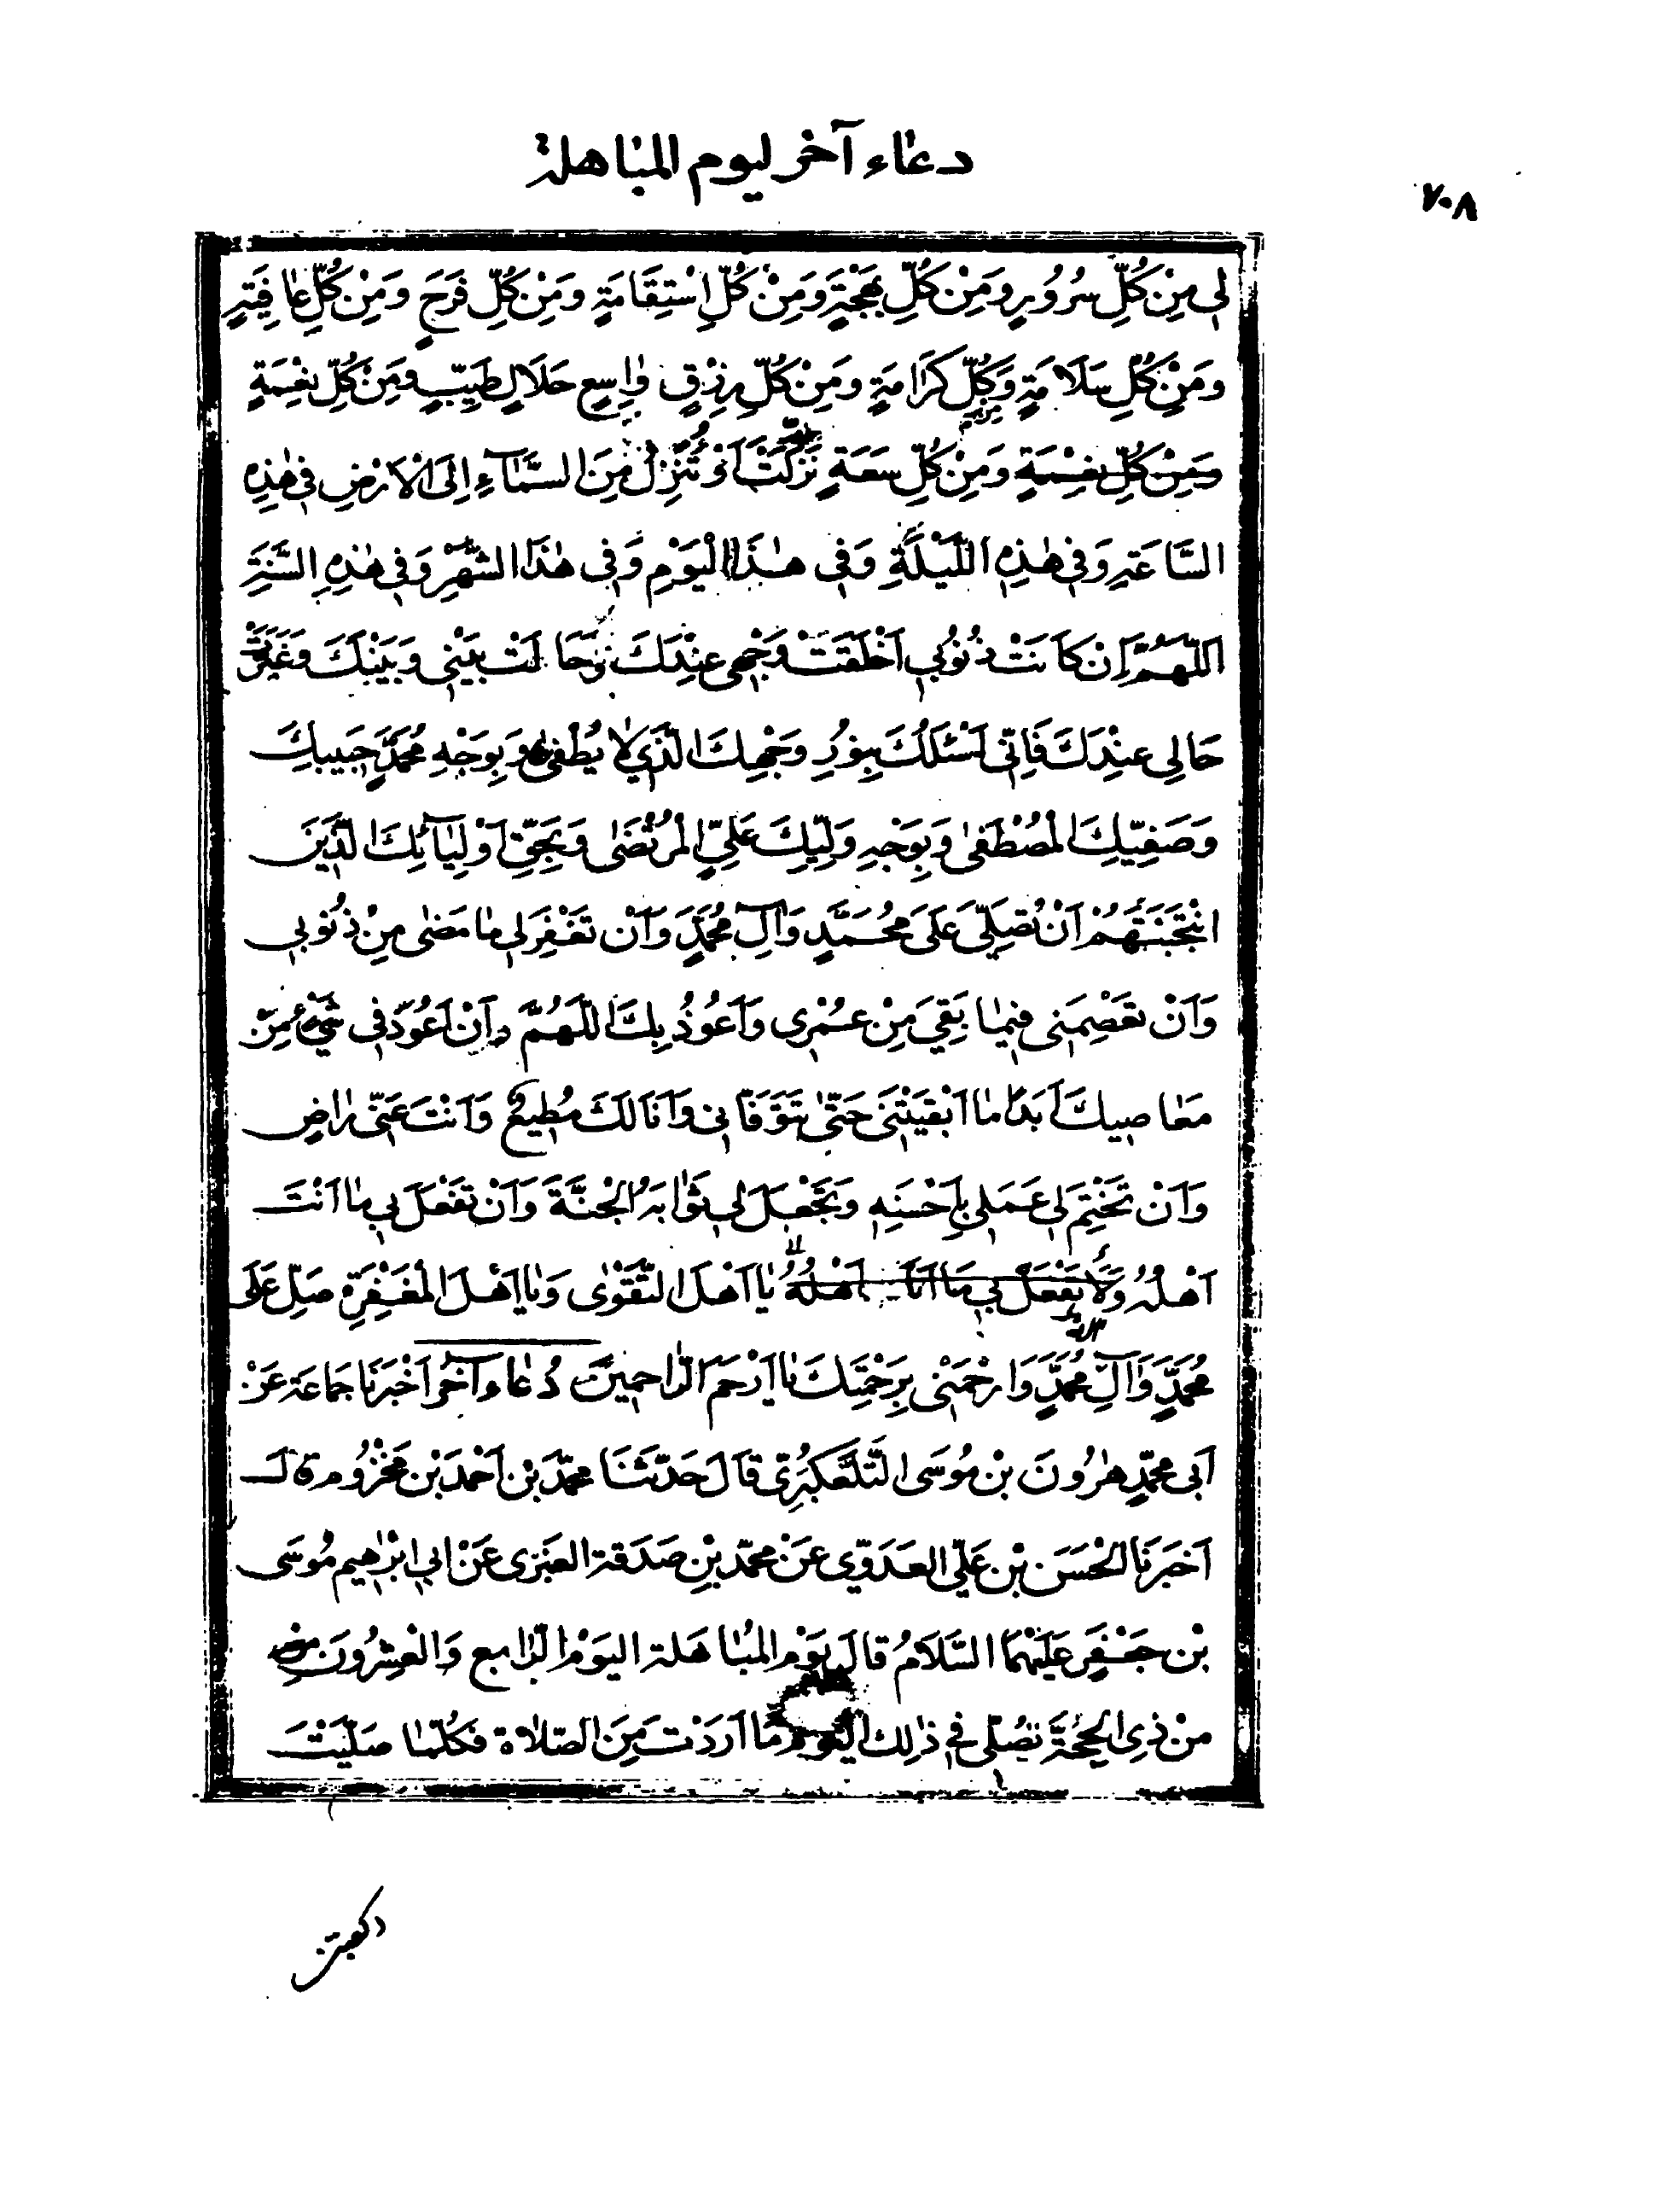 دعاء آخر ليوم المباهلة
٧٠٨
لي مِنْ كُلِّ سُرُورٍ وَمِنْ كُلِّ بَهْجَةٍ وَمِنْ كُلِّ اِسْتِقَامَةٍ وَمِنْ كُلِّ فَرَحٍ وَمِنْ كُلِّ عَافِيَةٍ
وَمِنْ كُلِّ سَلَامَةٍ وَكُلِّ كَرَامَةٍ وَمِنْ كُلِّ رِزْقٍ وَاسِعٍ حَلَالٍ طَيِّبٍ وَمِنْ كُلِّ نِعْمَةٍ
وَمِنْ كُلِّ نِعْمَةٍ وَمِنْ كُلِّ سَعَةٍ نَزَلَتْ اَوْ تُنَزِّلُ مِنَ السَّمَآءِ اِلَى الْاَرْضِ فِي هٰذِهِ
السَّاعَةِ وَفِي هٰذِهِ اللَّيْلَةِ وَفِي هٰذَا الْيَوْمِ وَفِي هٰذَا الشَّهْرِ وَفِي هٰذِهِ السَّنَةِ
اَللّٰهُمَّ اِنْ كَانَتْ ذُنُوبِي اَخْلَقَتْ وَجْهِي عِنْدَكَ وَحَالَتْ بَيْنِي وَبَيْنَكَ وَغَيَّرَتْ
حَالِي عِنْدَكَ فَاِنِّي اَسْئَلُكَ بِنُورِ وَجْهِكَ الَّذِي لَا يُطْفَى وَبِوَجْهِ مُحَمَّدٍ حَبِيبِكَ
وَصَفِيِّكَ الْمُصْطَفٰى وَبِوَجْهِ وَلِيِّكَ عَلِيٍّ الْمُرْتَضٰى وَبِحَقِّ اَوْلِيَآئِكَ الَّذِينَ
انْتَجَبْتَهُمْ اَنْ تُصَلِّيَ عَلَى مُحَمَّدٍ وَآلِ مُحَمَّدٍ وَاَنْ تَغْفِرَ لِي مَا مَضٰى مِنْ ذُنُوبِي
وَاَنْ تَعْصِمَنِي فِيمَا بَقِيَ مِنْ عُمْرِي وَاَعُوذُ بِكَ اللّٰهُمَّ اَنْ اَعُودَ فِي شَيْءٍ مِنْ
مَعَاصِيكَ اَبَدًا مَا اَبْقَيْتَنِي حَتّٰى تَتَوَفَّانِي وَاَنَا لَكَ مُطِيعٌ وَاَنْتَ عَنِّي رَاضٍ
وَاَنْ تَخْتِمَ لِي عَمَلِي بِاَحْسَنِهِ وَتَجْعَلَ لِي ثَوَابَهُ الْجَنَّةَ وَاَنْ تَفْعَلَ بِي مَا اَنْتَ
اَهْلُهُ وَلَا تَفْعَلْ بِي مَا اَنَا اَهْلُهُ يَا اَهْلَ التَّقْوٰى وَيَا اَهْلَ الْمَغْفِرَةِ صَلِّ عَلَى
مُحَمَّدٍ وَآلِ مُحَمَّدٍ وَارْحَمْنِي بِرَحْمَتِكَ يَا اَرْحَمَ الرَّاحِمِينَ دُعَاء آخَرُ اَخْبَرَنَا جَمَاعَة عَنْ
اَبِي مُحَمَّدٍ هٰرُونَ بْنِ مُوسَى التَّلَّعُكْبَرِيّ قَالَ حَدَّثَنَا مُحَمَّد بْن اَحْمَدَ بْنِ مَخْزُوم قَالَ
اَخْبَرَنَا الْحَسَنَ بْن عَلِيّ العَدَوِيّ عَنْ مُحَمَّد بْنِ صَدَقَة العَنْبَرِيّ عَنْ اَبِي اِبْرَاهِيمَ مُوسَى
بْن جَعْفَرٍ عَلَيْهِمَا السَّلَامُ قَالَ يَوْمُ المُبَاهَلة اليَوْمُ الرَّابِع وَالْعِشْرُونَ
مِنْ ذِي الحِجَّةِ تُصَلِّي فِي ذٰلِكَ اليَوْمِ مَا اَرَدْتَ مِنَ الصَّلَاة فَكُلَّمَا صَلَّيْتَ
ركعتين